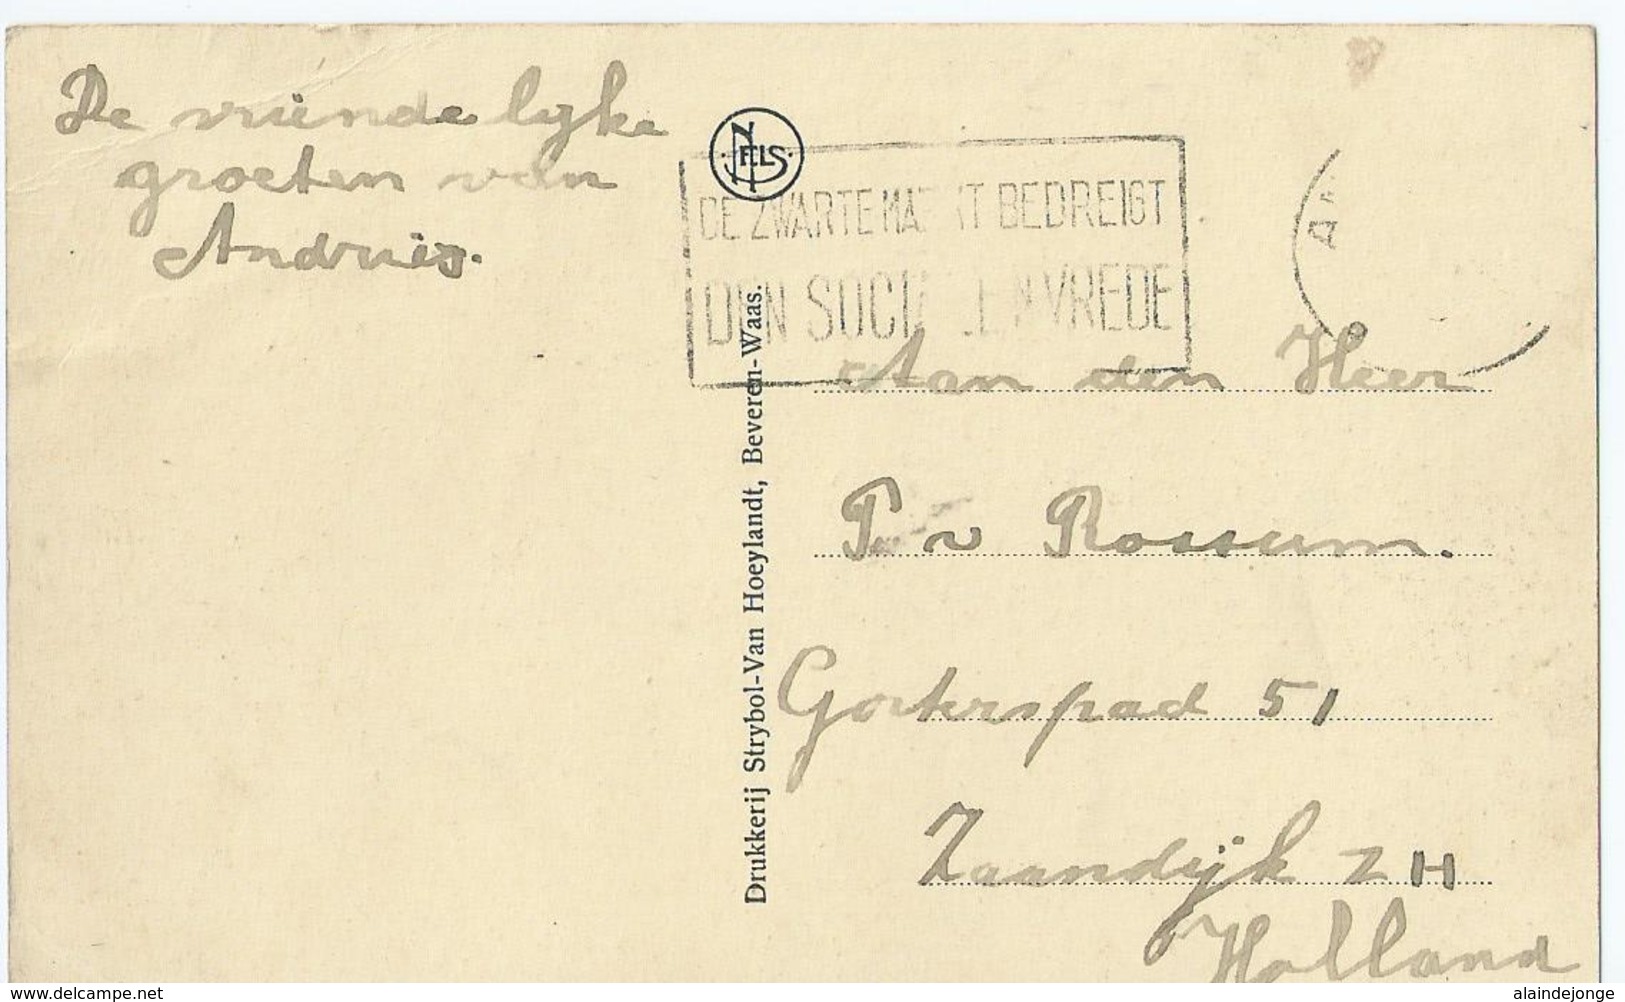 De vriendelyke
groeten van
Andries.
NELS
DE ZWARTE MARKT BEDREIGT
DEN SOCIALEN VREDE
Drukkerij Strybol-Van Hoeylandt, Beveren-Waas.
Aan den Heer
P. v Rossum.
Gorterspad 51
Zaandijk ZH
Holland
www.delcampe.net
alaindejonge